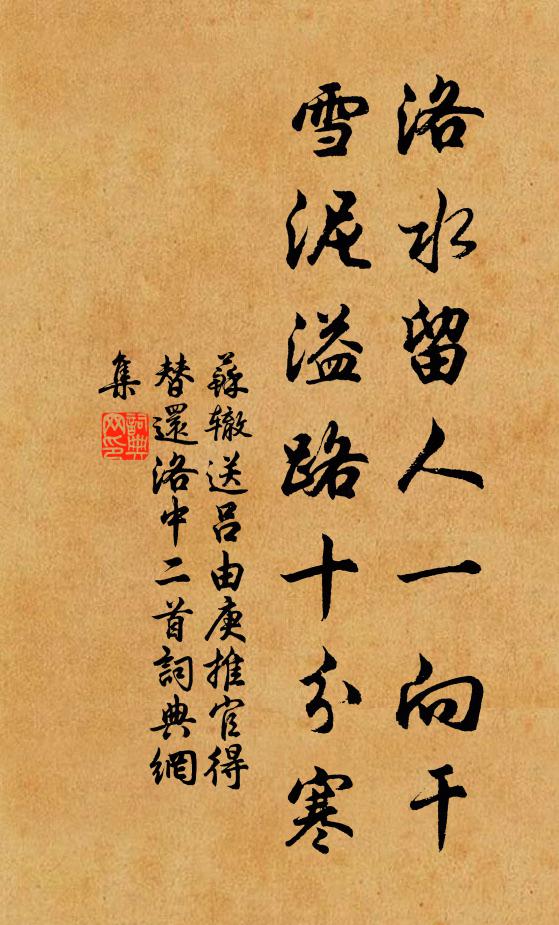 洛水留人一向干
雪泥溢路十分寒
蘇辙送呂由庚推官得
替還洛中二首詞典網
集
詞典
网印